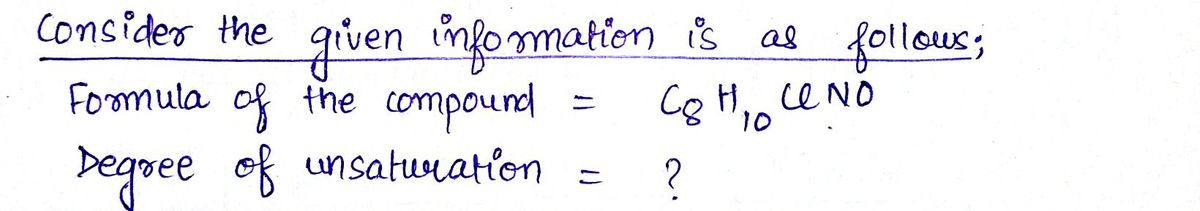 Consider the given information is as follows;
Formula of the compound = C₈H₁₀ClNO
Degree of unsaturation = ?